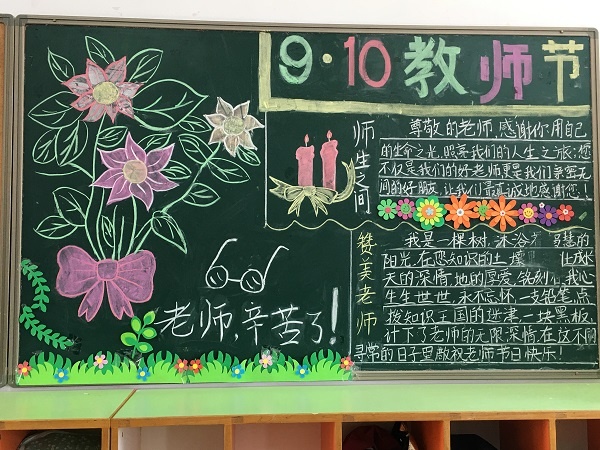 9·10教师节
师生之间
尊敬的老师,感谢你用自己
的生命之光,照亮我们的人生之旅;您
不仅是我们的好老师更是我们亲密无
间的好朋友,让我们最真诚地感谢您!
赞美老师
我是一棵树,沐浴
阳光,在您知识的土壤
天的深情,地的厚爱,铭刻
生生世世,永不忘怀,一支铅笔,点
拨知识王国的迷津,一块黑板,
计下了老师的无限深情,在这不同
寻常的日子里敬祝老师节日快乐!
老师,辛苦了!